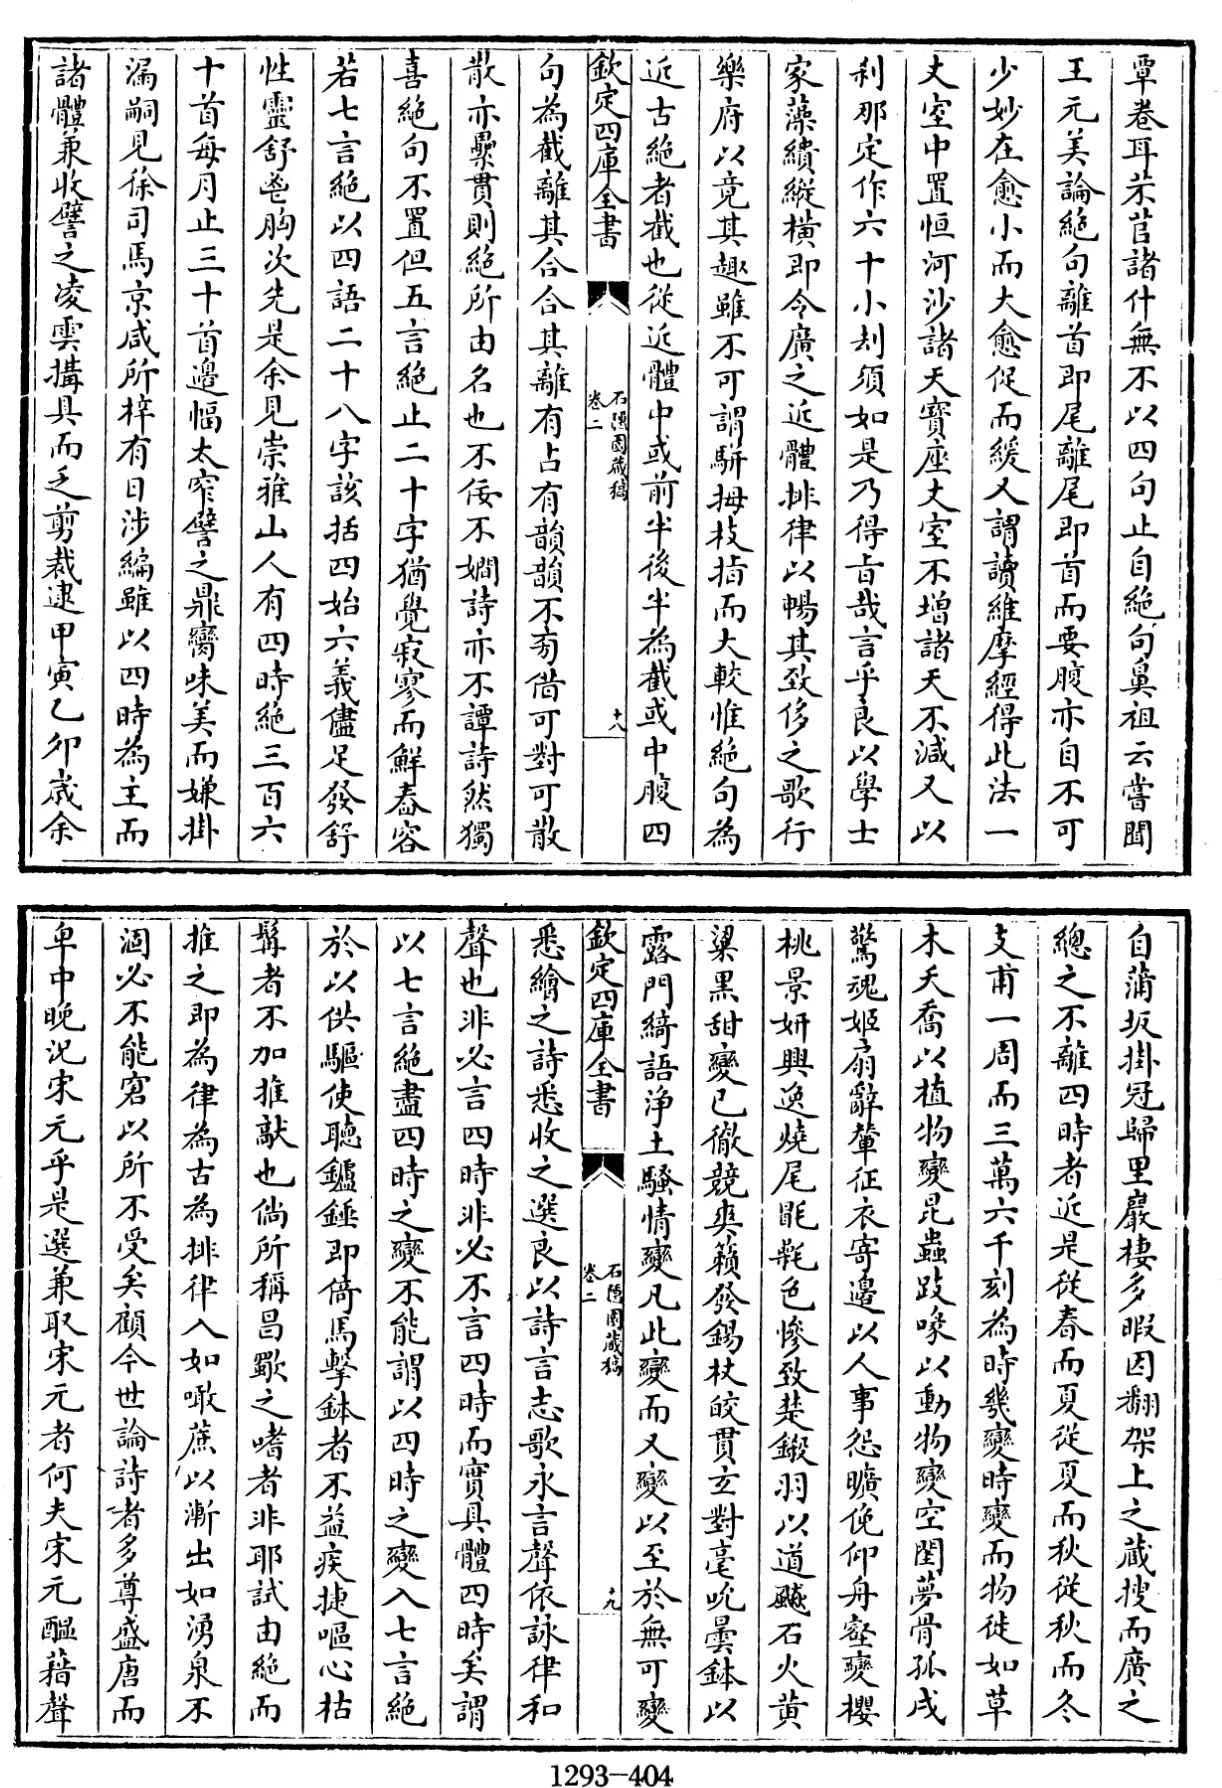 覃卷耳芣苢諸什無不以四句止自絶句鼻祖云嘗聞
王元美論絶句離首即尾離尾即首而要腹亦自不可
少妙在愈小而大愈促而緩又謂讀維摩經得此法一
丈室中置恒河沙諸天寶座丈室不增諸天不減又以
刹那定作六十小刦須如是乃得旨哉言乎良以學士
家藻繢縱横即令廣之近體排律以暢其致侈之歌行
樂府以竟其趣雖不可謂駢拇枝指而大較惟絶句為
近古絶者截也從近體中或前半後半為截或中腹四
欽定四庫全書
石隱園藏稿
卷二
十八
句為截離其合合其離有占有韻韻不旁借可對可散
散亦纍貫則絶所由名也不佞不嫺詩亦不譚詩然獨
喜絶句不置但五言絶止二十字猶覺寂寥而鮮春容
若七言絶以四語二十八字該括四始六義儘足發舒
性靈舒邕胸次先是余見崇雅山人有四時絶三百六
十首每月止三十首邊幅太窄譬之鼎臠味美而嫌掛
漏嗣見徐司馬京咸所梓有日涉編雖以四時為主而
諸體兼收譬之凌雲搆具而乏剪裁逮甲寅乙卯歲余
自蒲坂掛冠歸里巖棲多暇因翻架上之藏搜而廣之
總之不離四時者近是從春而夏從夏而秋從秋而冬
支甫一周而三萬六千刻為時幾變時變而物徙如草
木夭喬以植物變昆蟲跂喙以動物變空閨夢骨孤戍
驚魂姬扇辭輦征衣寄邊以人事怨曠俛仰舟壑變櫻
桃景妍興逸燒尾毷氉色慘致楚鍛羽以道颷石火黄
粱黑甜變已徹競爽籟發錫杖皎貫玄對毫吮曇鉢以
露門綺語淨土騷情變凡此變而又變以至於無可變
欽定四庫全書
石隱園藏稿
卷二
十九
悉繪之詩悉收之選良以詩言志歌永言聲依詠律和
聲也非必言四時非必不言四時而實具體四時矣謂
以七言絶盡四時之變不能謂以四時之變入七言絶
於以供驅使聽鑪錘即倚馬擊鉢者不益疾捷嘔心枯
髯者不加推敲也倘所稱昌歜之嗜者非耶試由絶而
推之即為律為古為排律入如噉蔗以漸出如湧泉不
涸必不能窘以所不受矣顧今世論詩者多尊盛唐而
卑中晚况宋元乎是選兼取宋元者何夫宋元醖藉聲
1293-404